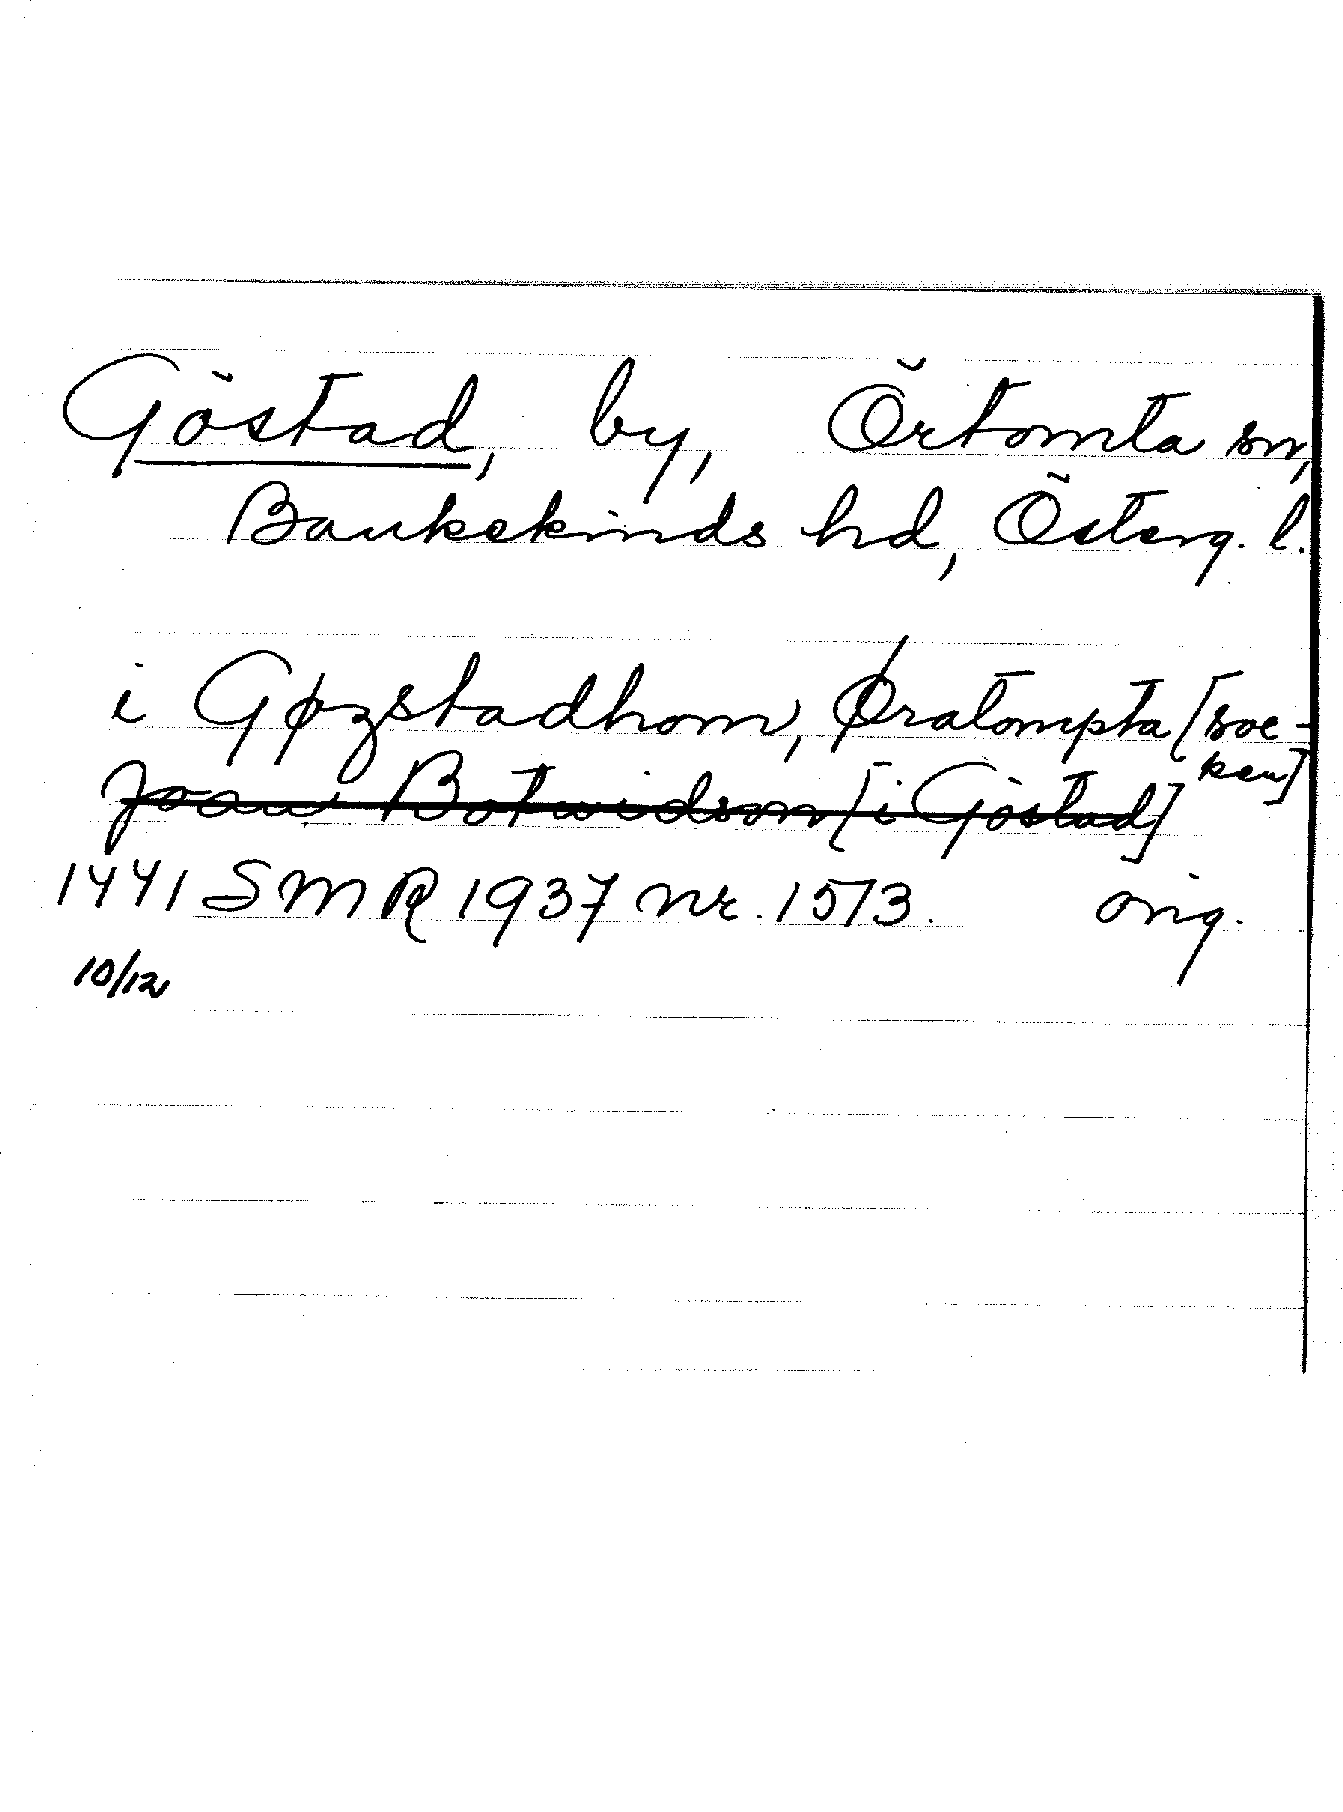 Göstad, by, Örtomta sn,
Bankekinds hd, Österg. l.
i Gøzstadhom, Øratompta [soc-
ken]
Joan Botwidson [i Göstad]
1441 SMR 1937 nr. 1513. orig.
10/12